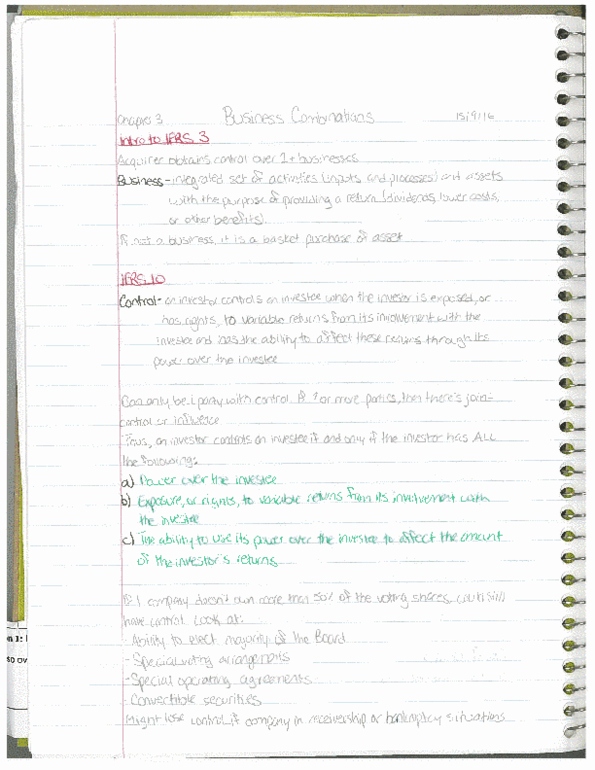 Chapter 3 Business Combinations 15/9/16
Intro to IFRS 3
Acquirer obtains control over 1+ businesses
Business - integrated set of activities (inputs and processes) and assets
with the purpose of providing a return (dividends, lower costs,
or other benefits).
If not a business, it is a basket purchase of asset
IFRS 10
Control - an investor controls an investee when the investor is exposed, or
has rights, to variable returns from its involvement with the
investee and has the ability to affect these returns through its
power over the investee
Can only be 1 party with control. If or more parties, then there's joint
control or influence
Thus, an investor controls an investee if and only if the investor has ALL
the following:
a) Power over the investee
b) Exposure, or rights, to variable returns from its involvement with
the investee
c) The ability to use its power over the investee to affect the amount
of the investor's returns
If 1 company doesn't own more than 50% of the voting shares, could still
have control. Look at:
- Ability to elect majority of the Board
- Special voting arrangements
- Special operating agreements
- Convertible securities
Might lose control if company in receivership or bankruptcy situations